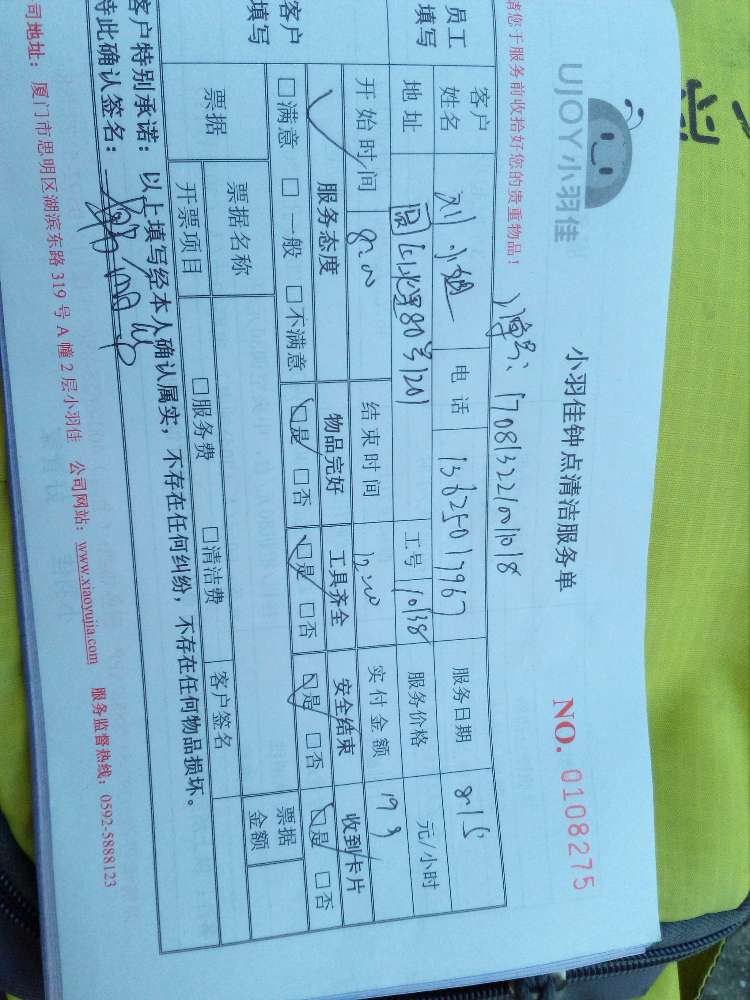 UJOY小羽佳
小羽佳钟点清洁服务单
NO. 0108275
请您于服务前收拾好您的贵重物品！
170813221001018
员工填写
客户姓名 刘小姐 电话 服务日期 8/15
地址 80号1201 工号 10138 服务价格 元/小时
开始时间 8:00 结束时间 12:00 实付金额 199
客户填写
服务态度 物品完好 工具齐全 安全结束 收到卡片
□满意 □一般 □不满意 □是 □否 □是 □否 □是 □否 □是 □否
票据 票据名称 客户签名 票据金额
开票项目 □服务费 □清洁费
客户特别承诺：以上填写经本人确认属实，不存在任何纠纷，不存在任何物品损坏。
特此确认签名：
司地址：厦门市思明区湖滨东路319号A幢2层小羽佳 公司网站：www.xiaoyujia.com 服务监督热线：0592-5888123